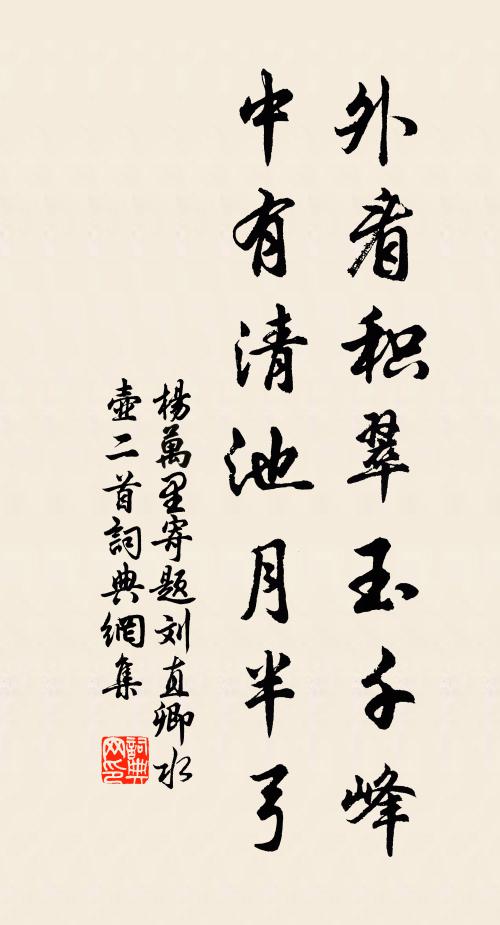 外看积翠玉千峰
中有清池月半弓
楊萬里寄题刘直卿水
壺二首詞典網集
詞典
网印